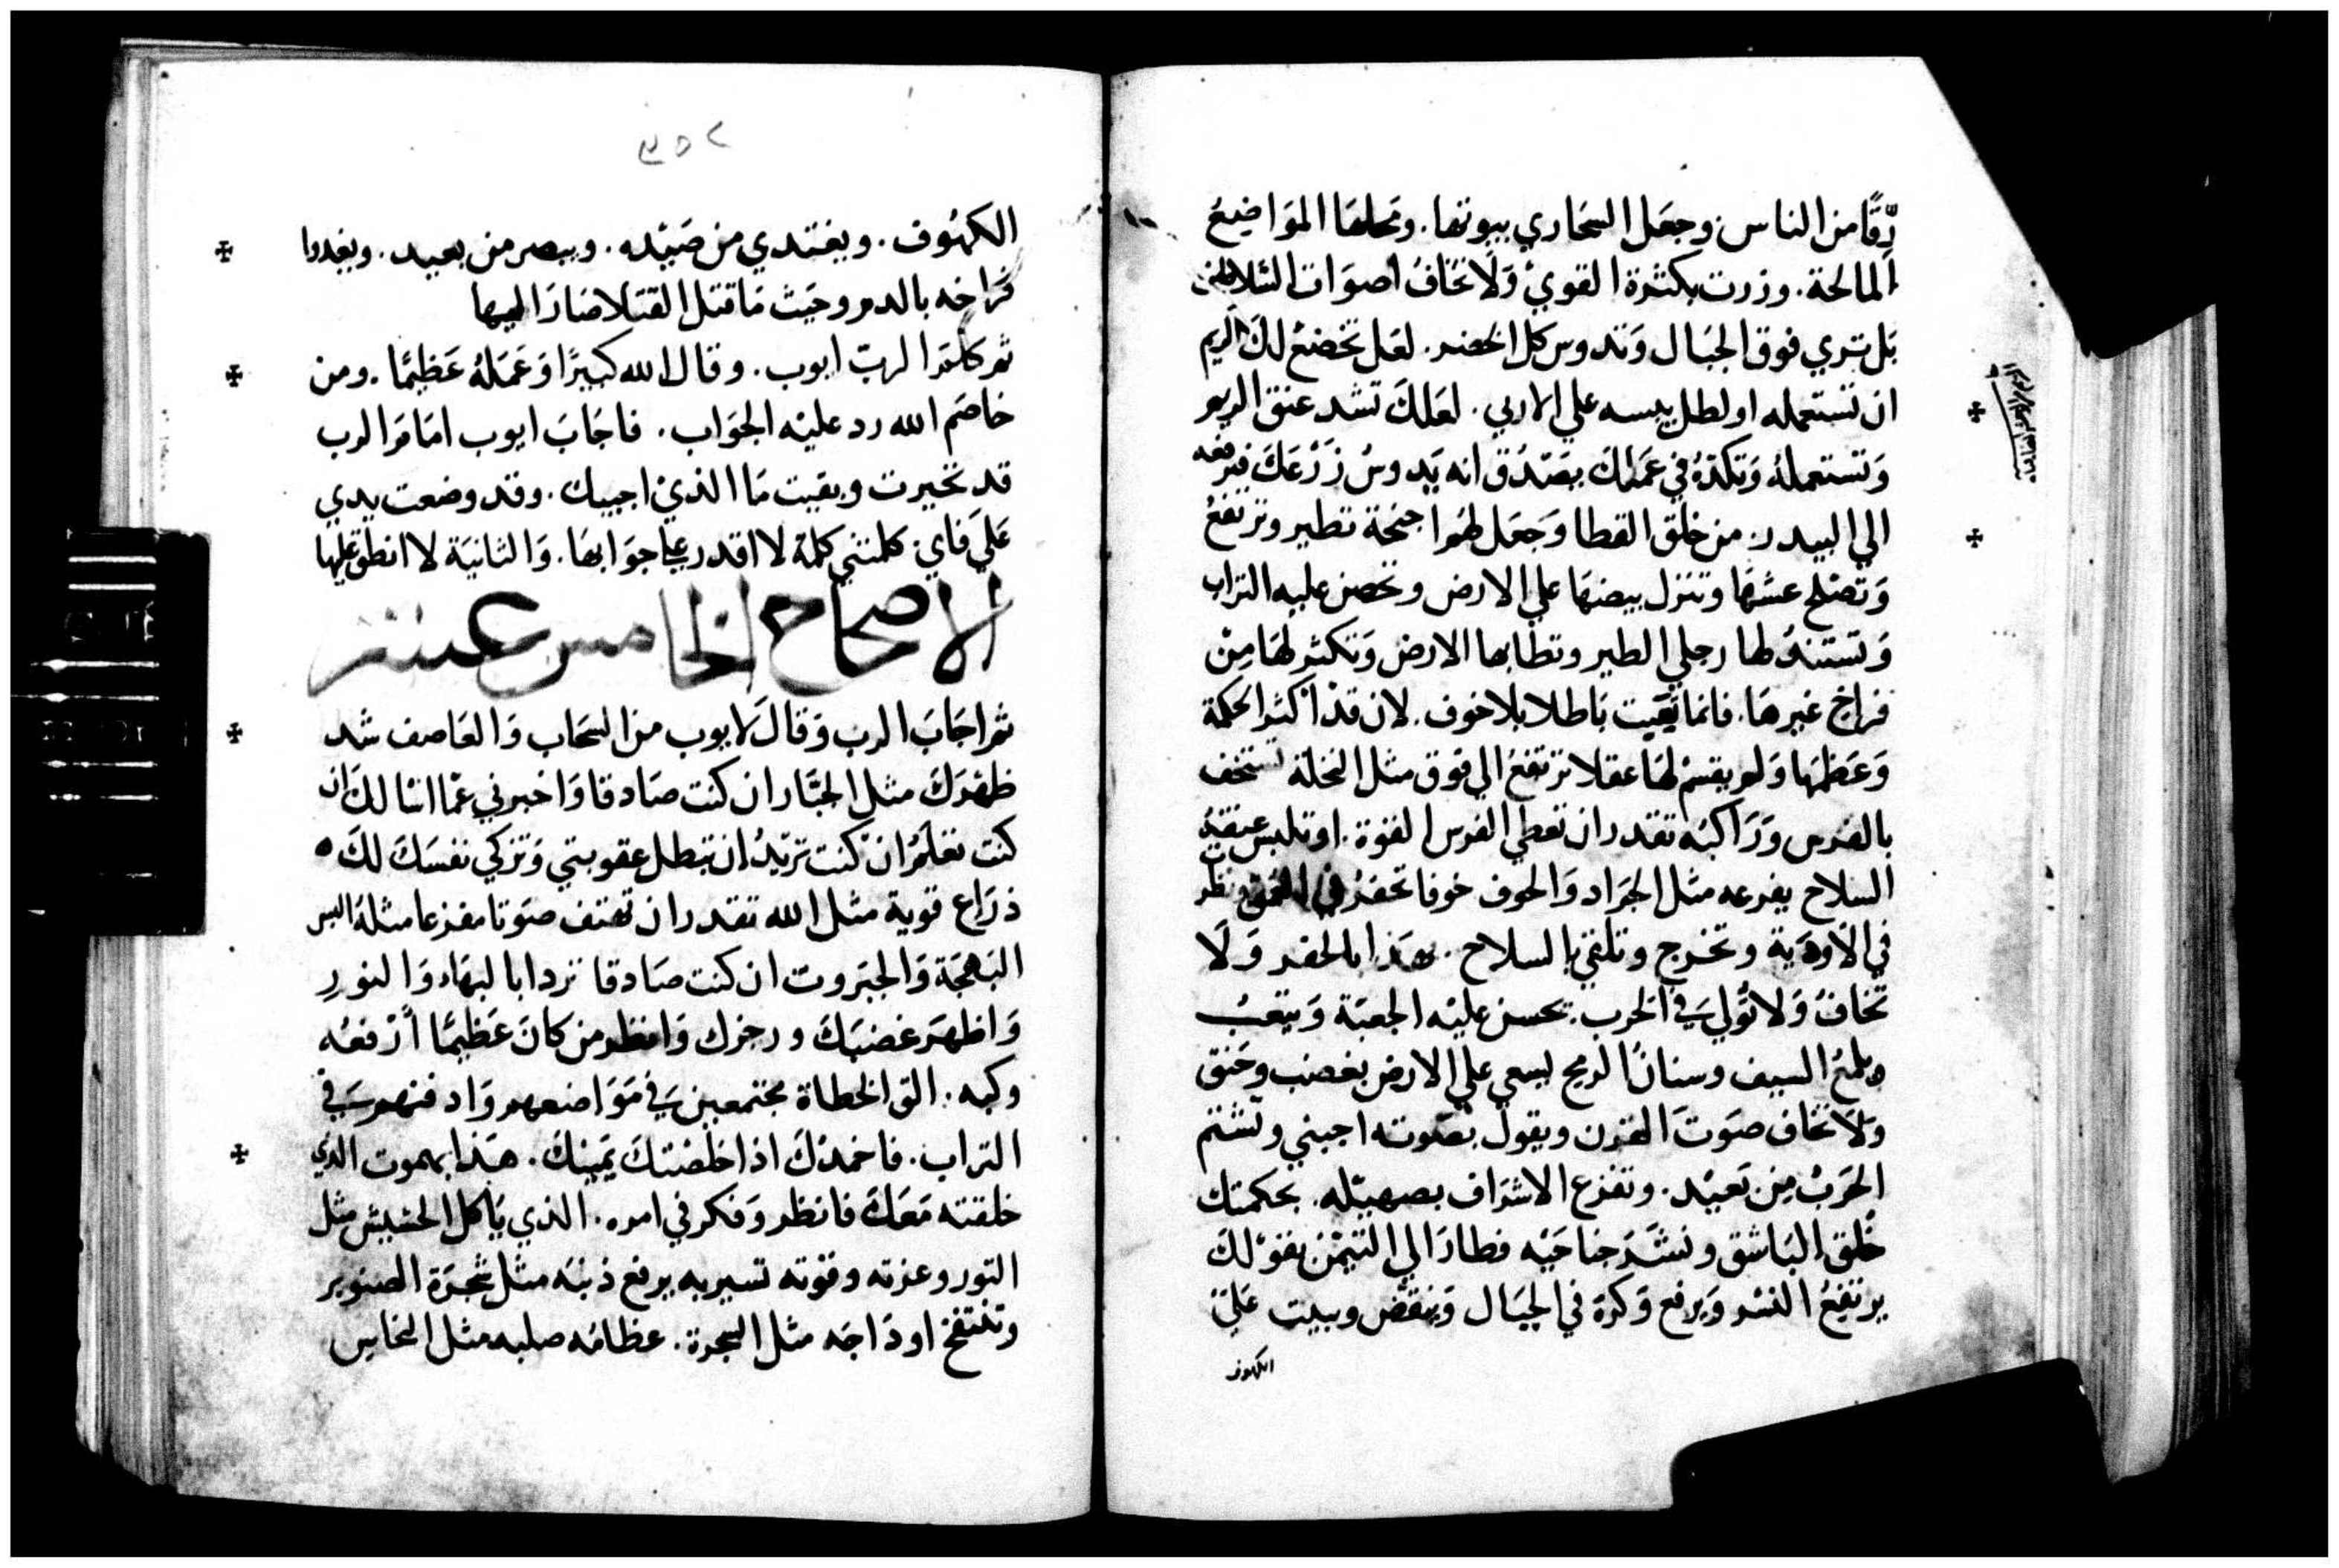 رِقًا من الناس وجعل السحاري بيوتها. ومحلها المواضيع
المالحة. وزرت بكثرة القوي ولا تخاف اصوات
بل تري فوق الجبال وتدوس كل الخضر. لعل تخضع لك الريم
ان تستعمله او لطل يبسه علي الاربي. لعلك تشد عنق الريم
وتستعمله وتكده في عملك بصدق انه يدوس زرعك فيرفعه
الي البيدر. من خلق القطا وجعل لهم اجنحة تطير وترتفع
وتصلح عشها وتنزل بيضها علي الارض وتحصن عليه التراب
وتستند لها رجلي الطير وتطابها الارض وتكثر لها من
فراخ غيرها. فانما تعيت باطلا بلا خوف. لان قد اكثر الحكمة
وعظمها ولم يقسم لها عقلا ترتفع الي فوق مثل النخلة تستخف
بالفرس وراكبه تقدر ان تعطي الفرس القوة. او تلبس عنقه
السلاح يفرعه مثل الجراد والخوف خوفا تحفر في العمق
في الاودية وتخرج وتلتقي بالسلاح. بالحفر ولا
تخاف ولا تولي في الحرب. تحسن عليه الجعبة ويتعب
ويلمع السيف وسنان الرمح ليسعي علي الارض بغضب وحنق
ولا تخاف صوت القرن ويقول بصوته اجبني وتشتم
الحرب من بعيد. وتفزع الاشراف بصهيله. بحكمتك
خلق الباشق ونشر جناحيه فطار الي التيمن بقولك
يرتفع النسر ويرفع وكرة في الجبال وينقض ويبيت علي
الكهوف
٣٥٢
الكهوف. ويغتدي من صيده. ويبصر من بعيد. ويغدوا
فراخه بالدم وحيث ما قتل القتلا صار اليها
ثم كلم الرب ايوب. وقال الله كبيرًا وعمله عظيمًا. ومن
خاصم الله رد عليه الجواب. فاجاب ايوب امام الرب
قد تحيرت وبقيت ما الذي اجيبك. وقد وضعت يدي
علي فاي. كلمتني كلمة لا اقدر علي جوابها. والثانية لا انطق عليها
الاصحاح الخامس عشر
ثم اجاب الرب وقال لايوب من السحاب والعاصف شد
ظهرك مثل الجبار ان كنت صادقا واخبرني عما اسالك ان
كنت تعلم ان كنت تريد ان تبطل عقوبتي وتزكي نفسك لك ٥
ذراع قوية مثل الله تقدر ان تهتف صوتا مفزعا مثله البس
البهجة والجبروت ان كنت صادقا تردا بالبهاء والنور
واظهر غضبك ورجزك وانظر من كان عظيمًا ارفعه
وكبه. الق الخطاة مجتمعين في مواضعهم وادفنهم في
التراب. فاحمدك اذا خلصتك يمينك. هذا بهموت الذي
خلقته معك فانظر وفكر في امره. الذي ياكل الحشيش مثل
الثور وعزته وقوته تسير به يرفع ذنبه مثل شجرة الصنوبر
وتنتفخ اوداجه مثل السجرة. عظامه صلبه مثل النحاس